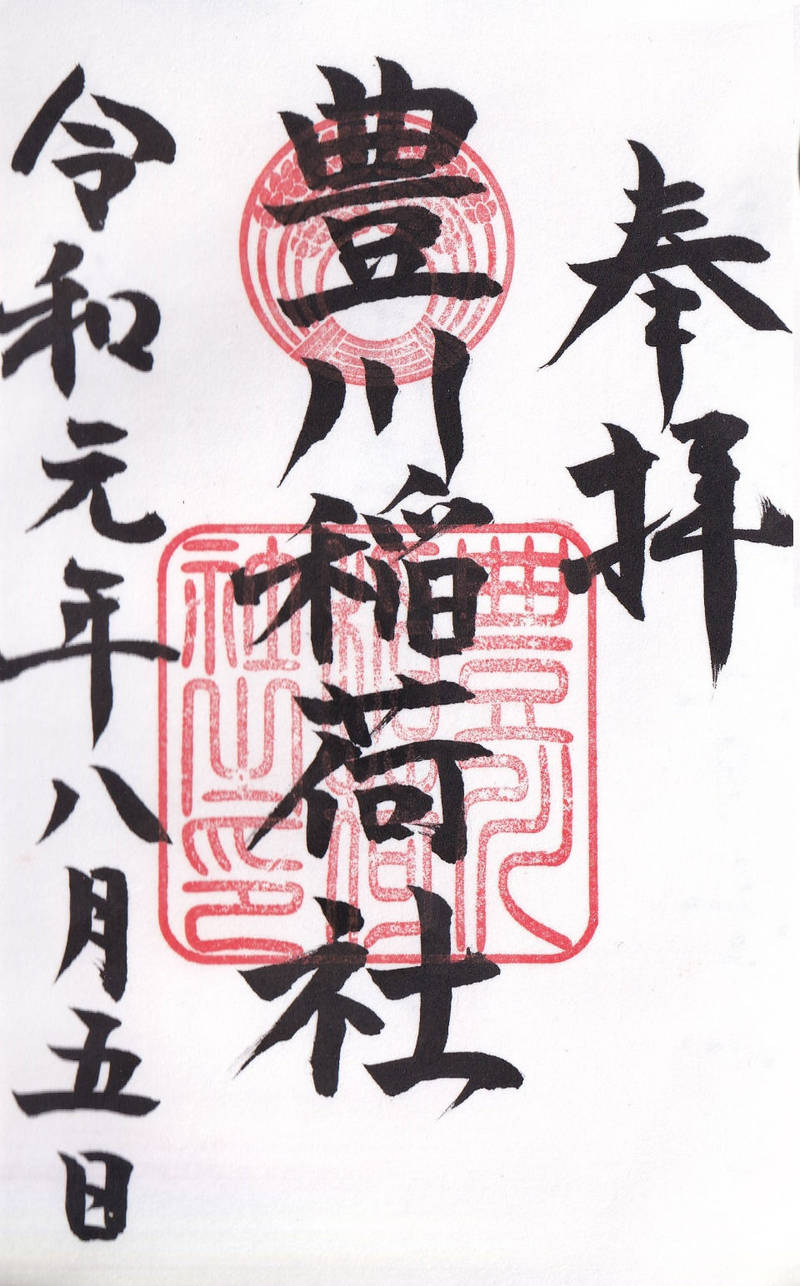 奉拝
豊川稲荷社
豊川稲荷社之印
令和元年八月五日